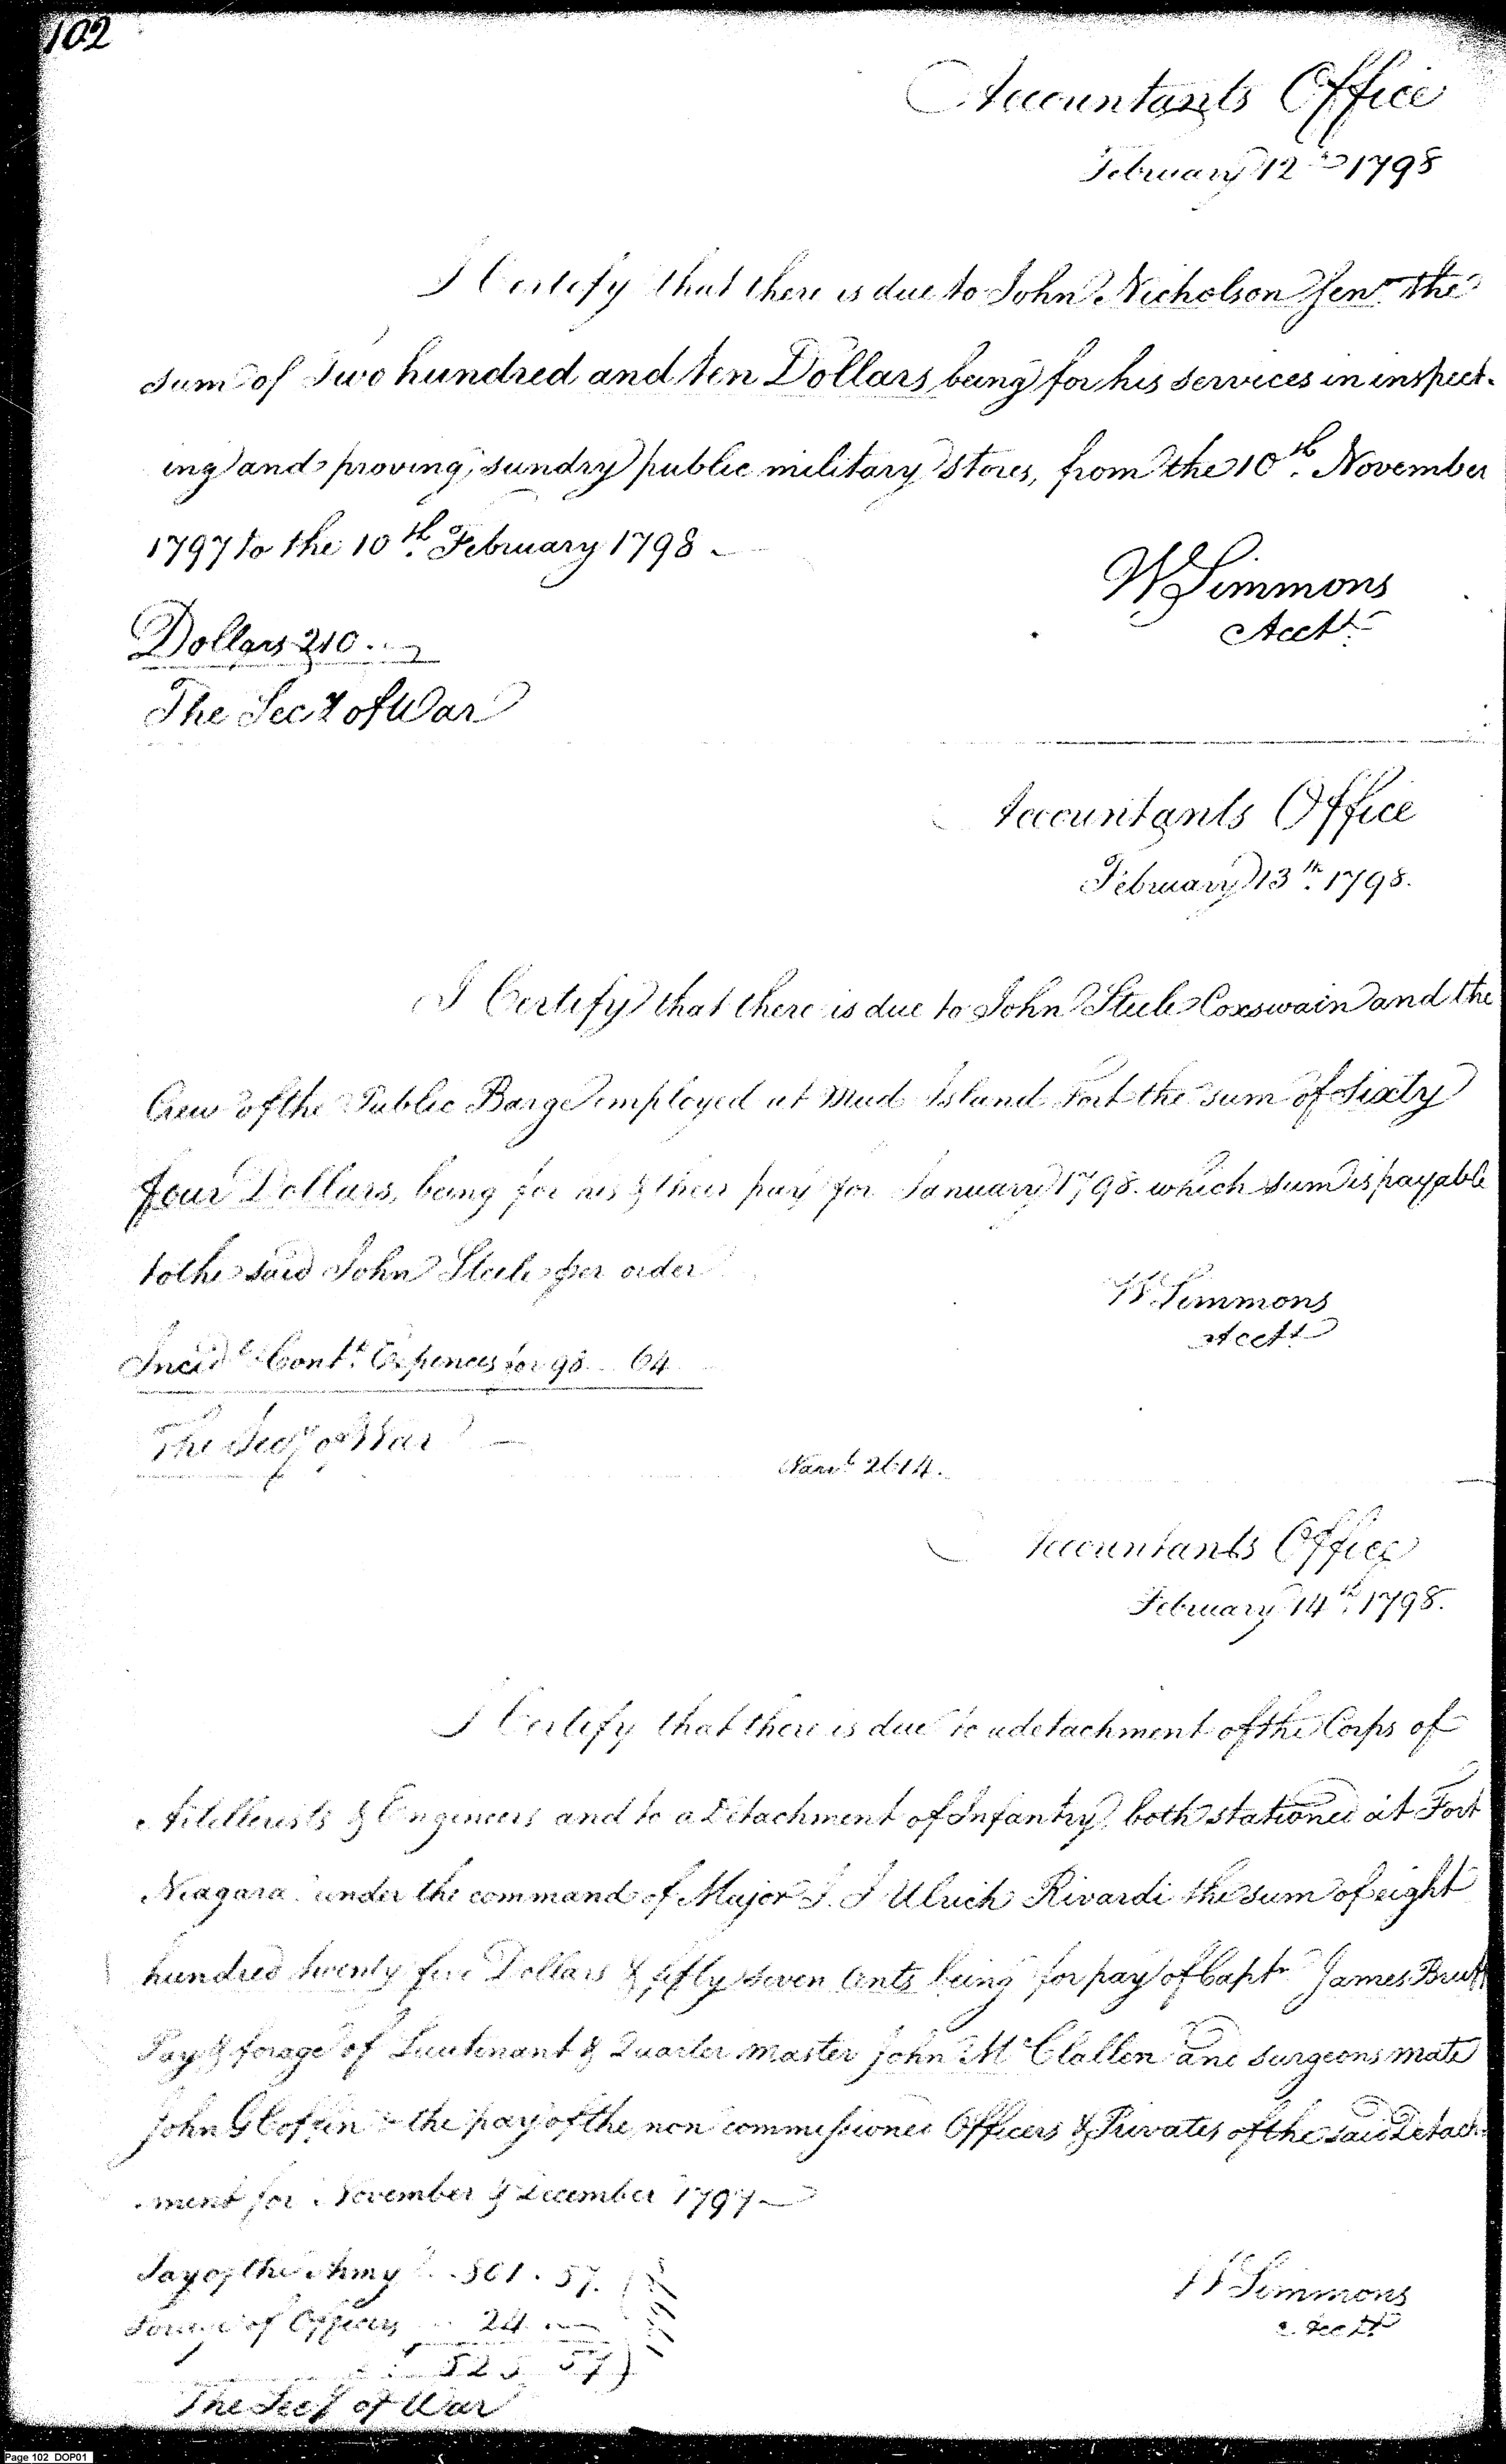 102
Accountants Office
February 12th 1798
I Certify that there is due to John Nicholson Senr. the
sum of Two hundred and ten Dollars, being for his services in inspect-
ing and proving, sundry public military stores, from the 10th. November
1797 to the 10th. February 1798 -
W Simmons
Acctt.
Dollars 210..
The Secy of War
Accountants Office
February 13th. 1798.
I Certify that there is due to John Steele Coxswain and the
Crew of the Public Barge employed at Mud Island Fort the sum of Sixty
four Dollars, being for his & their pay for January 1798. which sum is payable
to the said John Steele per order
W. Simmons
Acctt.
Incidl. Contt. Expences for 98... 64
The Secy of War
2614.
Accountants Office
February 14th. 1798.
I Certify that there is due to a detachment of the Corps of
Artillerists & Engineers and to a Detachment of Infantry, both stationed at Fort
Niagara under the command of Major J. J Ulrich Rivardi the sum of eight
hundred twenty five Dollars & fifty seven Cents being for pay of Captn. James Bruff
Pay & forage of Lieutenant & Quarter master John McClallen and surgeons mate
John G Coffin & the pay of the non commissioned Officers & Privates of the said Detach-
-ment for November & December 1797 -
Pay of the Army .. 801. 57.
Forage of Officers ... 24. -
825 57
W Simmons
Acctt
The Secy of War
Page 102 DOP01